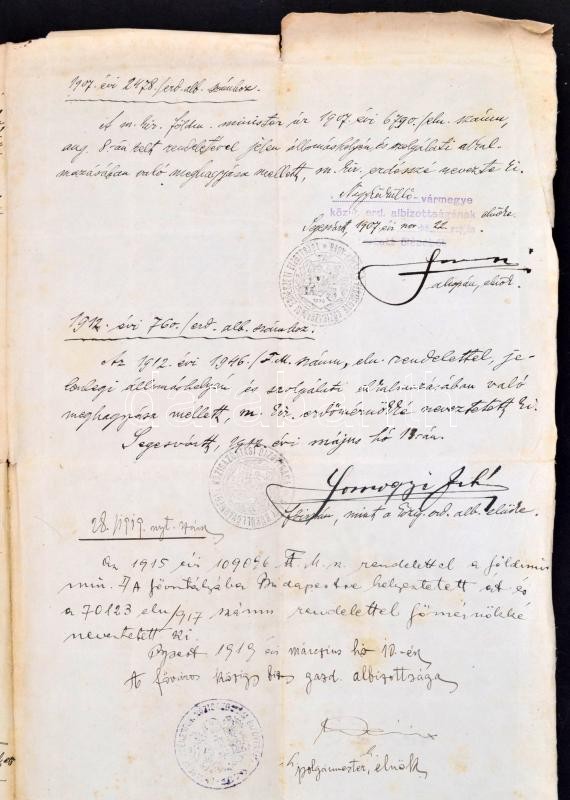 1907. évi 2478./erd. alb. számhoz.
A m. kir. földm. miniszter úr 1907 évi 6790./eln. számú,
aug. 8-án kelt rendeletével jelen állomáshelyén és szolgálati alkal-
mazásában való meghagyása mellett, m. kir. erdésszé nevezte ki.
Nagyküküllő-vármegye
közig. erd. albizottságának elnöke.
Segesvárt, 1907 évi nov. 22
alispán, elnök.
1912. évi 760./erd. alb. számhoz.
Az 1912. évi 1946./F.M. számú, eln. rendelettel, je-
lenlegi állomáshelyén és szolgálati alkalmazásában való
meghagyása mellett, m. kir. erdőmérnökké neveztetett ki.
Segesvártt, 1912. évi május hó 13-án.
Somogyi
alispán, mint a közig. erd. alb. elnöke.
28./1919. nyt. szám
Az 1915 évi 109046 F.M. n. rendelettel a földmiv.
min. I/A főosztályába Budapestre helyeztetett át és
a 70123 eln/917 számu rendelettel főmérnökké
neveztetett ki.
Bpest 1919 évi március hó 10-én
A főváros közig. biz. gazd. albizottsága
polgármester, elnök